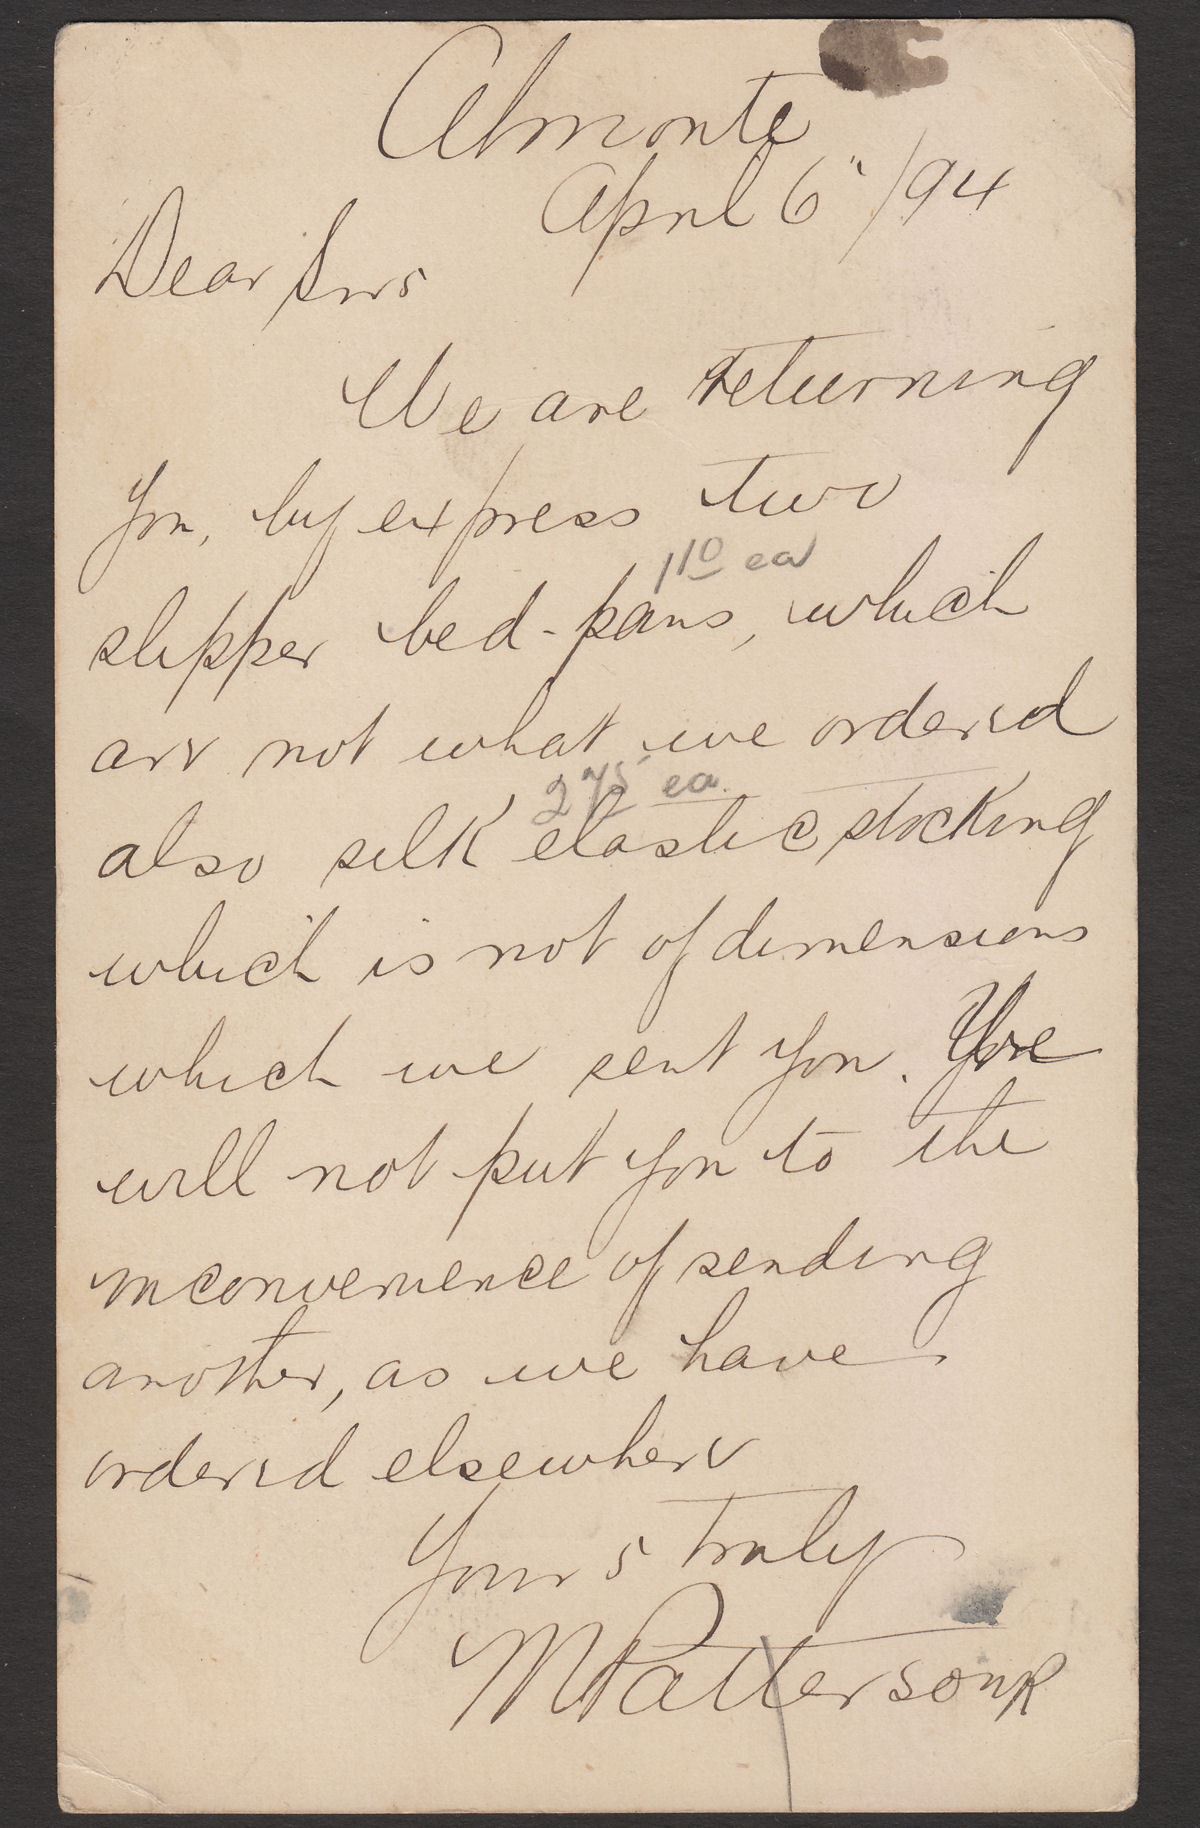 Almonte
April 6" /94
Dear Sirs
We are returning
you, by express two
1 10 ea
slipper bed-pans, which
are not what we ordered
2 75 ea.
also silk elastic stocking
which is not of dimensions
which we sent you. We
will not put you to the
inconvenience of sending
another, as we have
ordered elsewhere
Yours truly
M Patterson